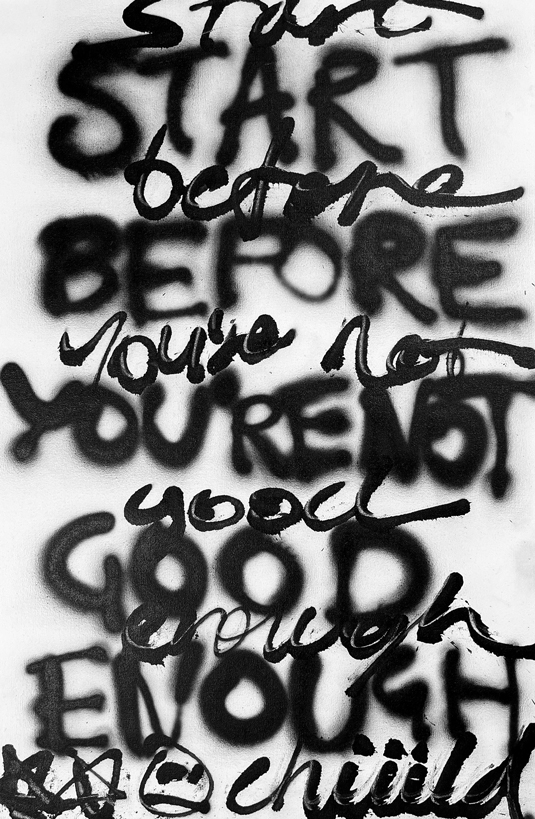 Start
START
before
BEFORE
you're not
YOU'RE NOT
good
GOOD
enough
ENOUGH
chiiild